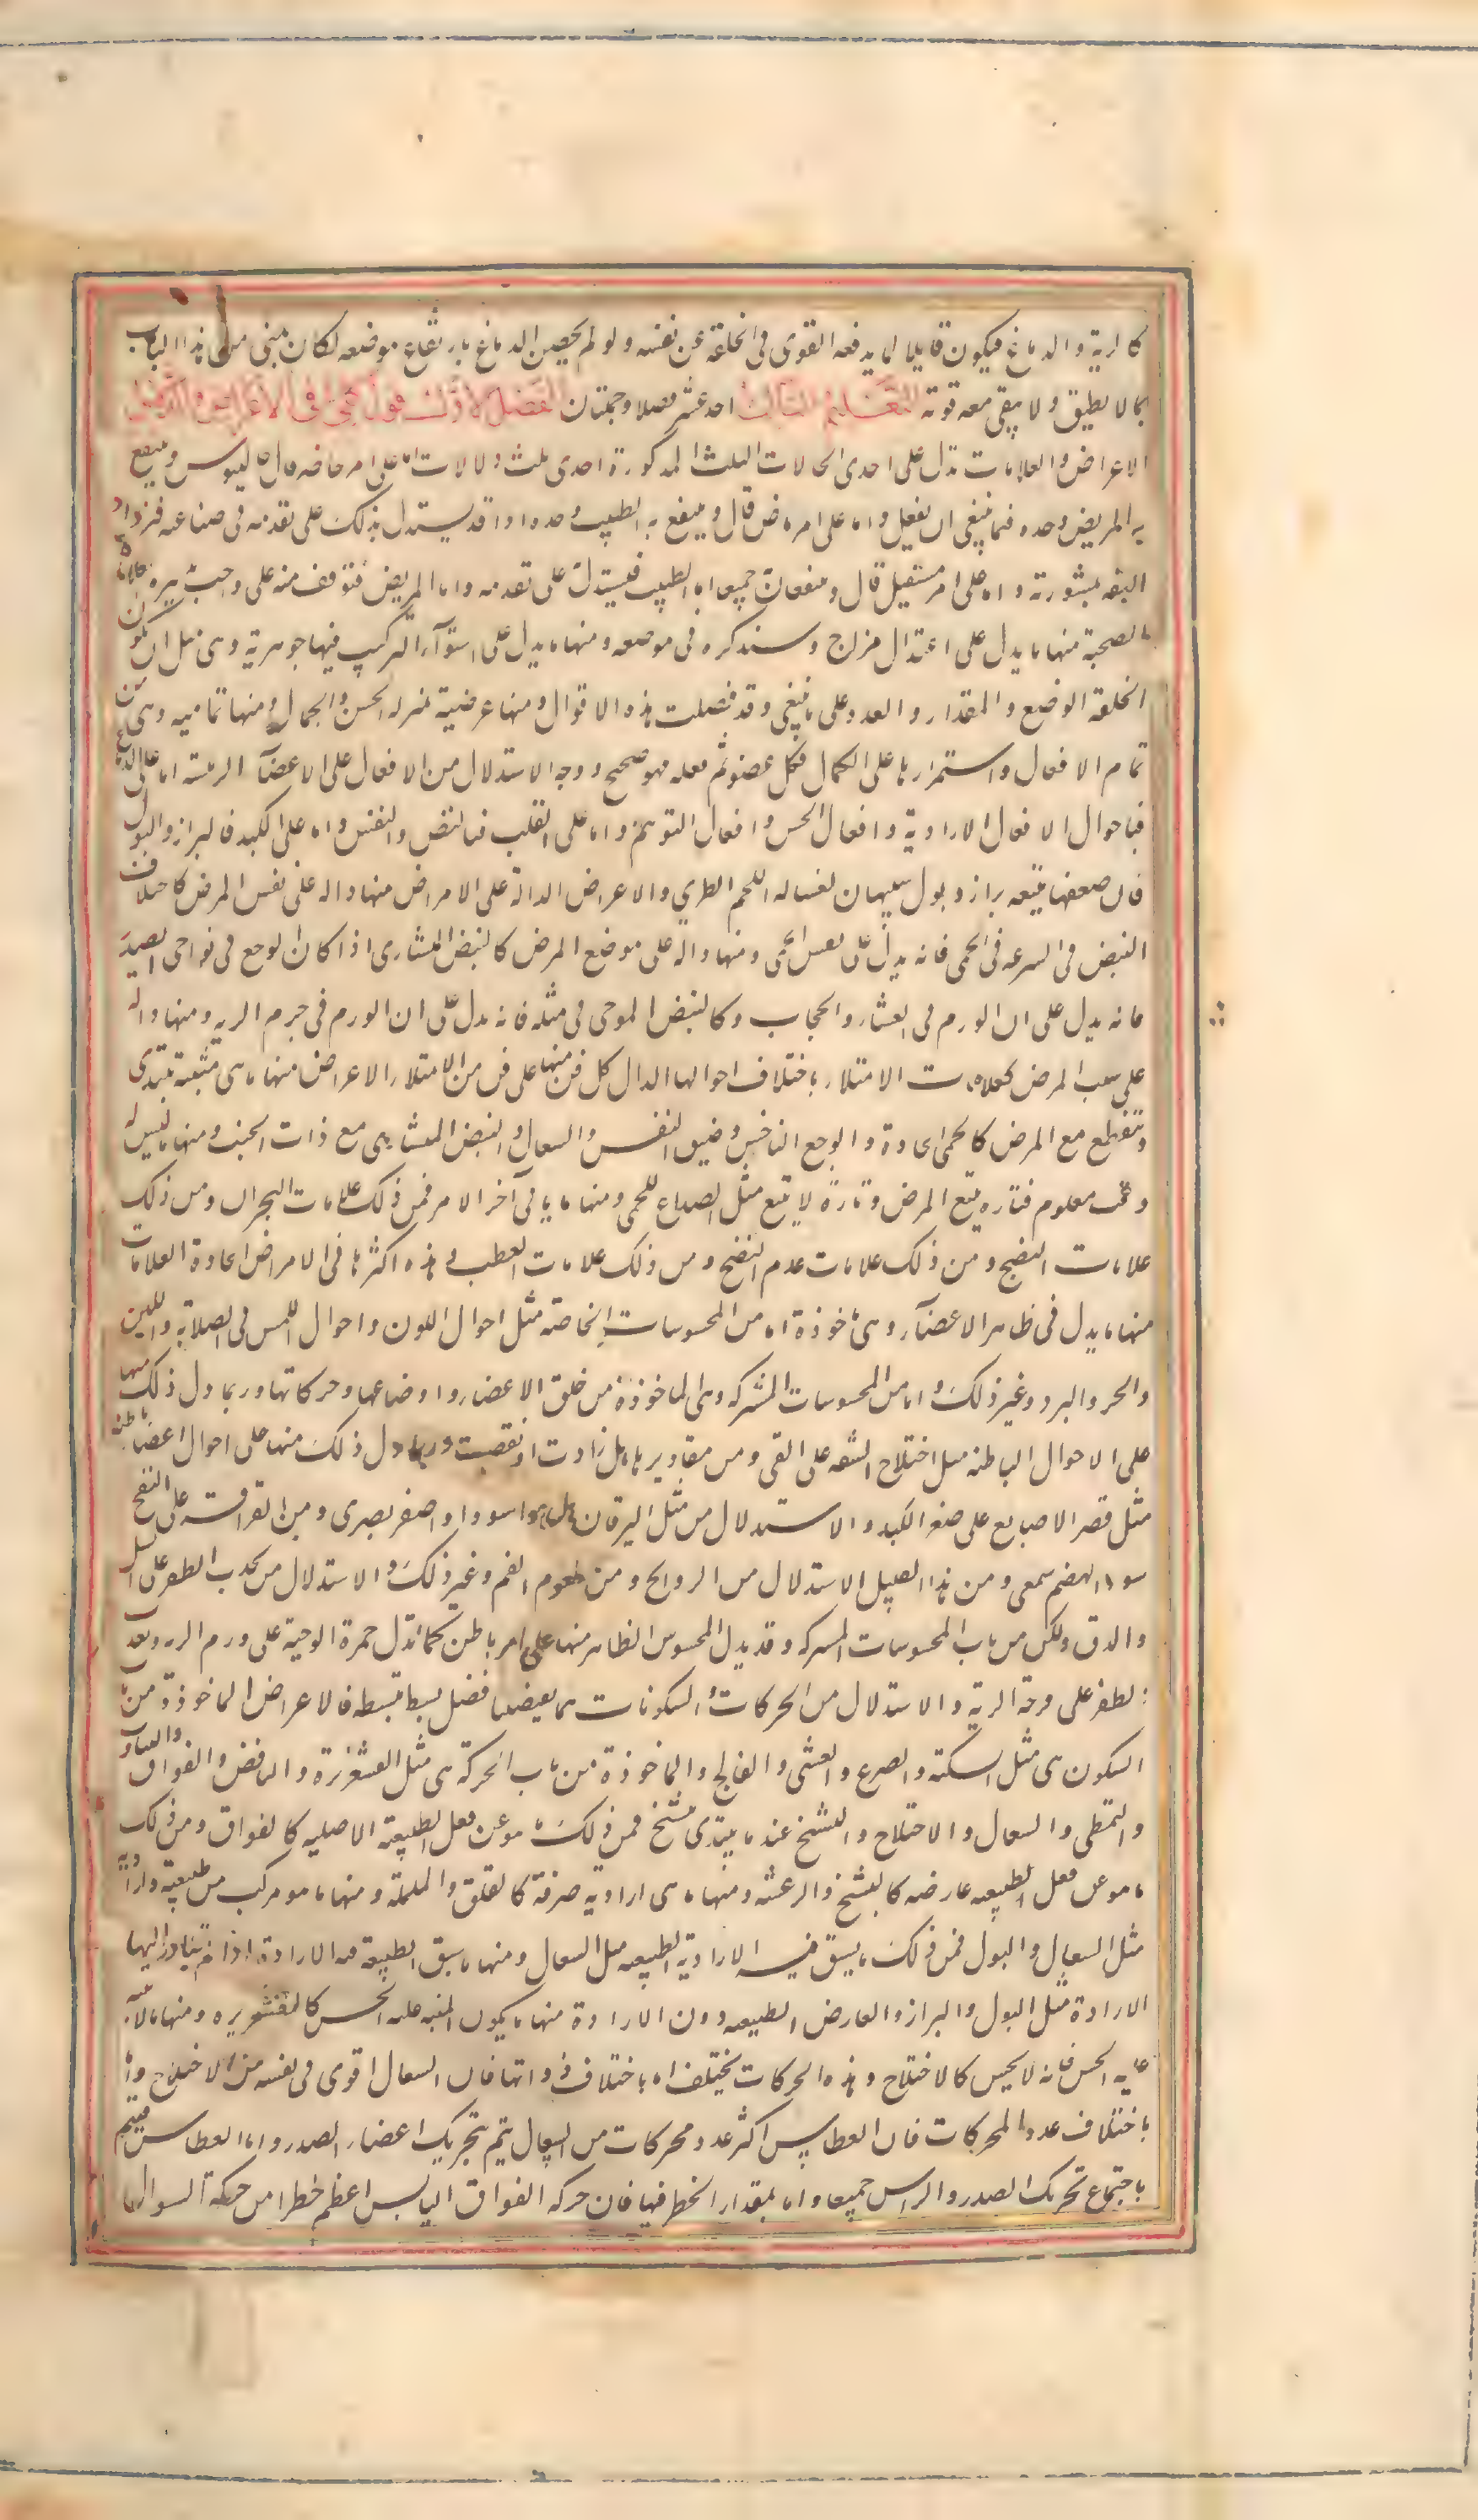 كالرية والدماغ فيكون قابلا لما يدفعه القوى في الخلقة عن نفسه ولو لم يحصن الدماغ بارتفاع موضعه لكان مبنى من هذا الباب
بما لا يطيق ولا يبقى معه قوته التعليم الثالث احد عشر فصلا وجملتان الفصل الاول قول كلي في الاعراض والدلائل
الاعراض والعلامات تدل على احدى الحالات الثلث المذكورة احدى ثلث دلالات اما على امر حاضر قال جالينوس وينتفع
به المريض وحده فيما ينبغي ان يفعل واما على امر ماض قال وينتفع به الطبيب وحده اذ قد يستدل بذلك على تقدمه في صناعته فتزداد
الثقة بمشورته واما على امر مستقبل قال وينتفعان جميعا اما الطبيب فيستدل على تقدمه واما المريض فيتوقف منه على واجب تدبيره
الصحية منها ما يدل على اعتدال مزاج وسنذكره في موضعه ومنها ما يدل على استوآء التركيب فمنها جوهرية وهي مثل ان يكون
الخلقة الوضع والمقدار والعدد على ما ينبغي وقد فصلت هذه الاقوال ومنها عرضية بمنزله الحسن والجمال ومنها تمامية وهي من
تمام الافعال واستمرارها على الكمال فكل عضو تم فعله فهو صحيح ووجه الاستدلال من الافعال على الاعضآ الرئيسة اما على الدماغ
فباحوال الافعال الارادية وافعال الحس وافعال التوهم واما على القلب فبالنبض والنفس واما على الكبد فالبراز والبول
فان ضعفها يتبعه براز وبول شبيهان بغسالة اللحم الطري والاعراض الدالة على الامراض منها دالة على نفس المرض كاختلاف
النبض في السرعه في الحمى فانه يدل على نفس الحمى ومنها دالة على موضع المرض كالنبض المنشاري اذا كان الوجع في نواحي الصدر
فانه يدل على ان الورم في الغشاء والحجاب وكالنبض الموجي في مثله فانه يدل على ان الورم في جرم الريه ومنها دالة
على سبب المرض كعلامات الامتلاء باختلاف احوالها الدال كل فن منها على فن من الامتلاء الاعراض منها ما هي مثبتة تبتدى
وتنقطع مع المرض كالحمى الحادة والوجع الناخس وضيق النفس والسعال والنبض المنشاري مع ذات الجنب ومنها ما ليس له
وقت معلوم فتاره يتبع المرض وتارة لا يتبع مثل الصداع للحمى ومنها ما ياتي آخر الامر فمن ذلك علامات البحران ومن ذلك
علامات النضج ومن ذلك علامات عدم النضج ومن ذلك علامات العطب وهذه اكثرها في الامراض الحادة العلامات
منها ما يدل في ظاهر الاعضآء وهي ماخوذة اما من المحسوسات الخاصة مثل احوال اللون واحوال اللمس في الصلابة واللين
والحر والبرد وغير ذلك واما من المحسوسات المشتركه وهي الماخوذة من خلق الاعضاء واوضاعها وحركاتها وربما دل ذلك منها
على الاحوال الباطنه مثل اختلاج الشفه على القي ومن مقاديرها هل زادت او نقصت وربما دل ذلك منها على احوال اعضا باطنة
مثل قصر الاصابع على صغر الكبد والاستدلال من مثل اليرقان هل هو اسود او اصفر بصرى ومن القراقر على النفخ
سوء الهضم سمعى ومن هذا القبيل الاستدلال من الروايح ومن طعوم الفم وغير ذلك والاستدلال من تحدب الظفر على السل
والدق ولكن من باب المحسوسات المشتركه وقد يدل المحسوس الظاهر منها على امر باطن كما تدل حمرة الوجنة على ورم الريه وتحدب
الظفر على قرحة الرية والاستدلال من الحركات والسكونات مما يعيضها فضل بسط نبسطه فالاعراض الماخوذة من
السكون هي مثل السكته والصرع والغشى والفالج والماخوذة من باب الحركة هي مثل القشعريرة والنافض والفواق والعطاس والتثاوب
والتمطي والسعال والاختلاج والتشنج عندما يبتدى يتشنج فمن ذلك ما هو عن فعل الطبيعة الاصليه كالفواق ومن ذلك
ما هو عن فعل الطبيعه عارضه كالتشنج والرعشه ومنها ما هي ارادية صرفة كالقلق والململة ومنها ما هو مركب من طبيعية وارادية
مثل السعال والبول فمن ذلك ما يسبق فيه الارادية الطبيعه مثل السعال ومنها ما يسبق الطبيعة فيه الارادة اذا لم تبادر اليها
الارادة مثل البول والبراز والعارض الطبيعه دون الارادة منها ما يكون المنبه عليه الحس كالقشعريره ومنها ما لا ينبه
عليه الحس فانه لا يحس كالاختلاج وهذه الحركات يختلف اما باختلاف ذواتها فان السعال اقوى في نفسه من الاختلاج واما
باختلاف عدد المحركات فان العطاس اكثر عدد محركات من السعال يتم بتحريك اعضاء الصدر واما العطاس فيتم
باجتماع تحريك الصدر والراس جميعا واما بمقدار الخطر فيها فان حركه الفواق اليابس اعظم خطرا من حركة السعال